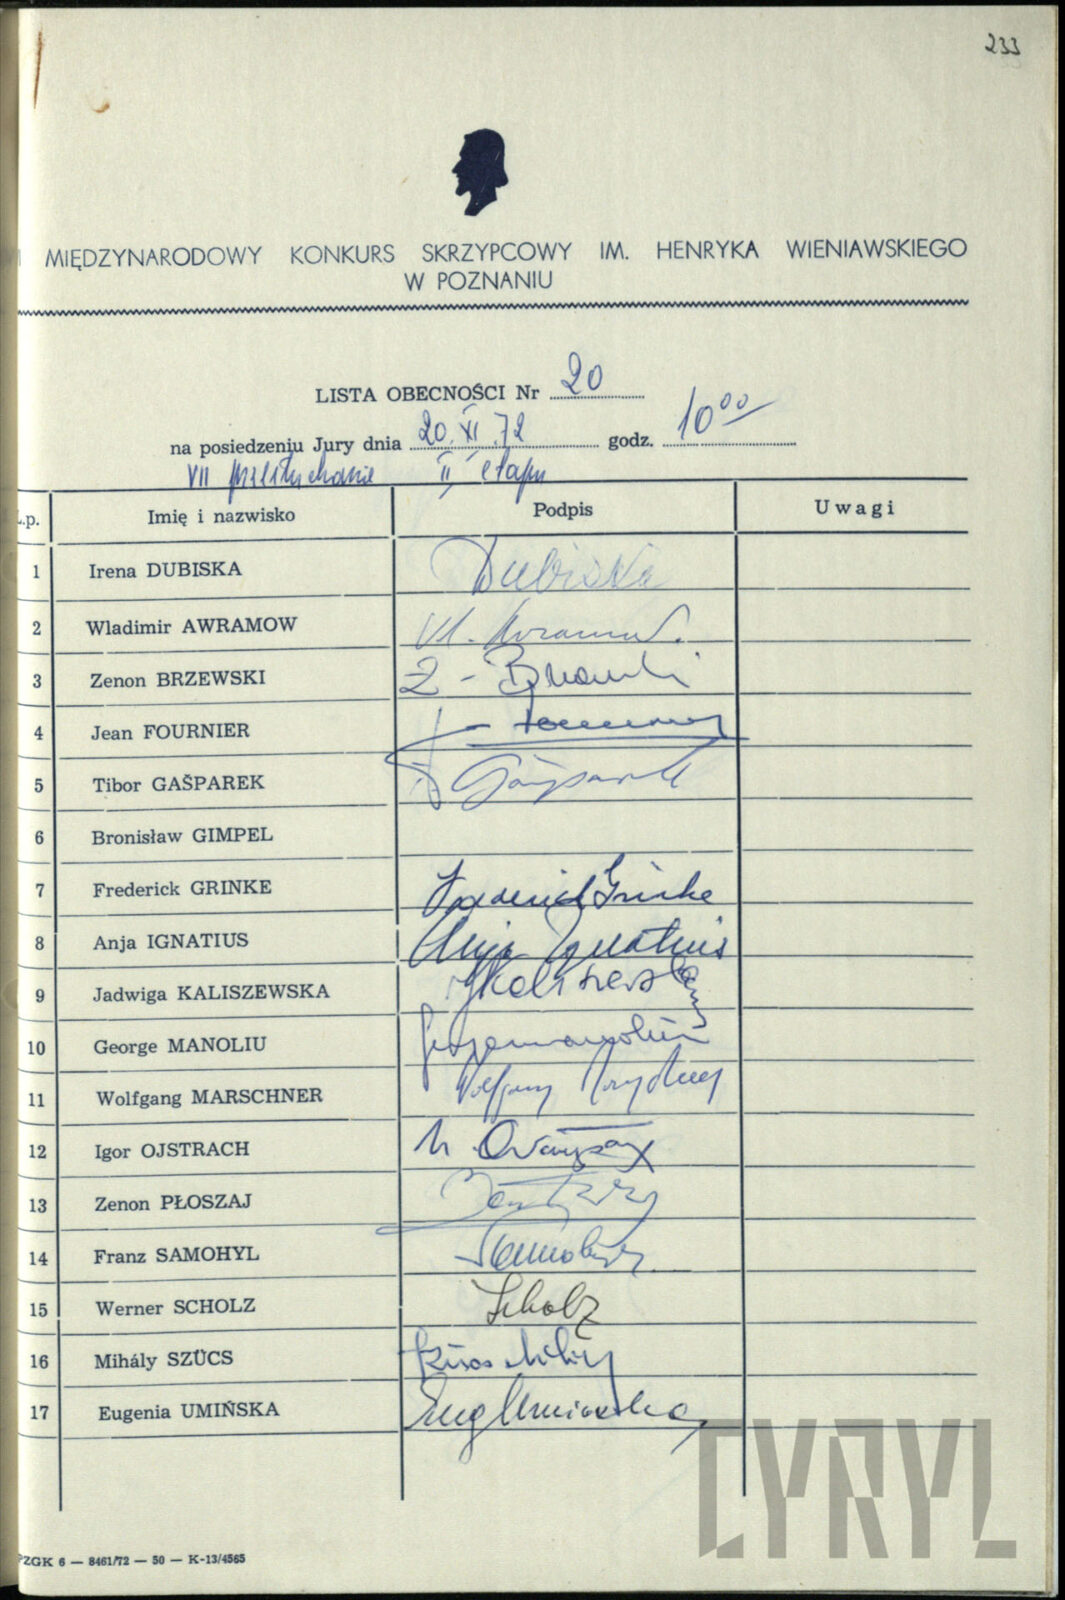 233
MIĘDZYNARODOWY KONKURS SKRZYPCOWY IM. HENRYKA WIENIAWSKIEGO
W POZNANIU
LISTA OBECNOŚCI Nr 20
na posiedzeniu Jury dnia 20.XI.72 godz. 10⁰⁰
VII przesłuchanie II etapu
L.p. Imię i nazwisko Podpis Uwagi
1 Irena DUBISKA Dubiska
2 Wladimir AWRAMOW
3 Zenon BRZEWSKI
4 Jean FOURNIER
5 Tibor GAŠPAREK Gašparek
6 Bronisław GIMPEL
7 Frederick GRINKE Frederick Grinke
8 Anja IGNATIUS Anja Ignatius
9 Jadwiga KALISZEWSKA JKaliszewska
10 George MANOLIU
11 Wolfgang MARSCHNER Wolfgang Marschner
12 Igor OJSTRACH
13 Zenon PŁOSZAJ
14 Franz SAMOHYL Samohyl
15 Werner SCHOLZ Scholz
16 Mihály SZÜCS Szücs Mihály
17 Eugenia UMIŃSKA Eug Umińska
PZGK 6 — 8461/72 — 50 — K-13/4565
CYRYL